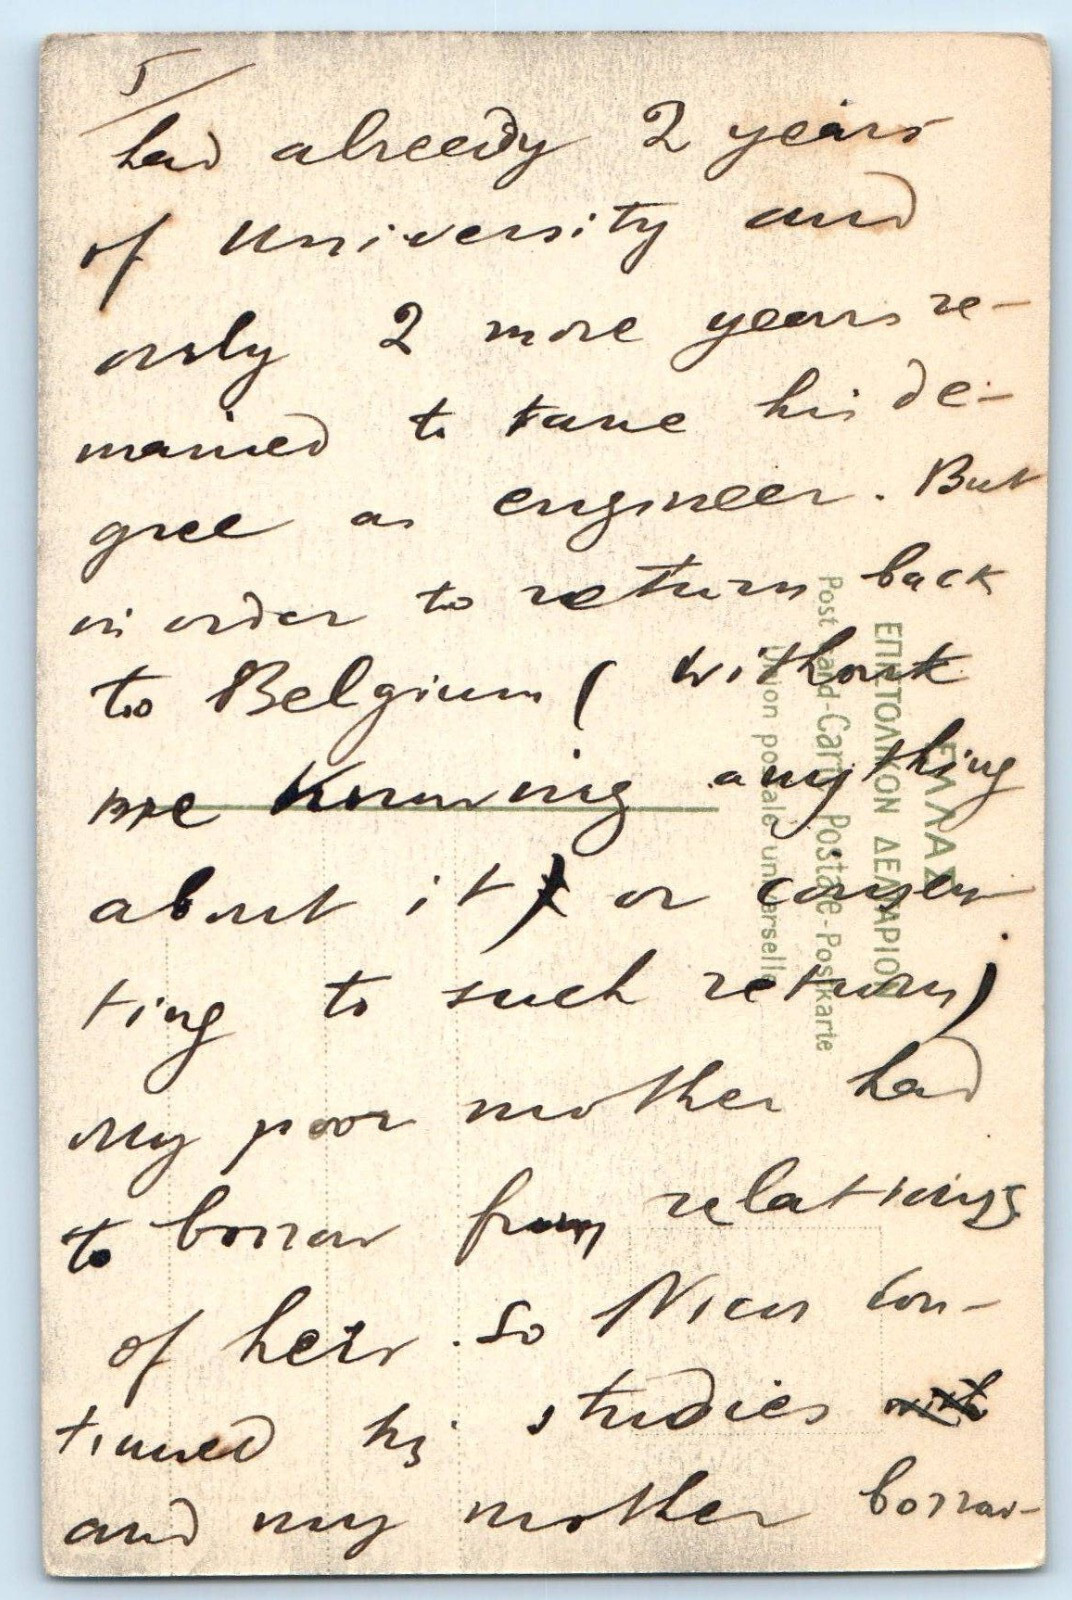 5/
had already 2 years
of University and
only 2 more years re-
mained to take his de-
gree as engineer. But
in order to return back
to Belgium ( without
me Knowing anything
about it) or consen-
ting to such return)
My poor mother had
to borrow from relations
of hers. So Nicos con-
tinued his studies
and my mother borrow-
ΕΛΛΑΣ
ΕΠΙΣΤΟΛΙΚΟΝ ΔΕΛΤΑΡΙΟΝ
Post card-Carte Postale-Postkarte
Union postale universelle